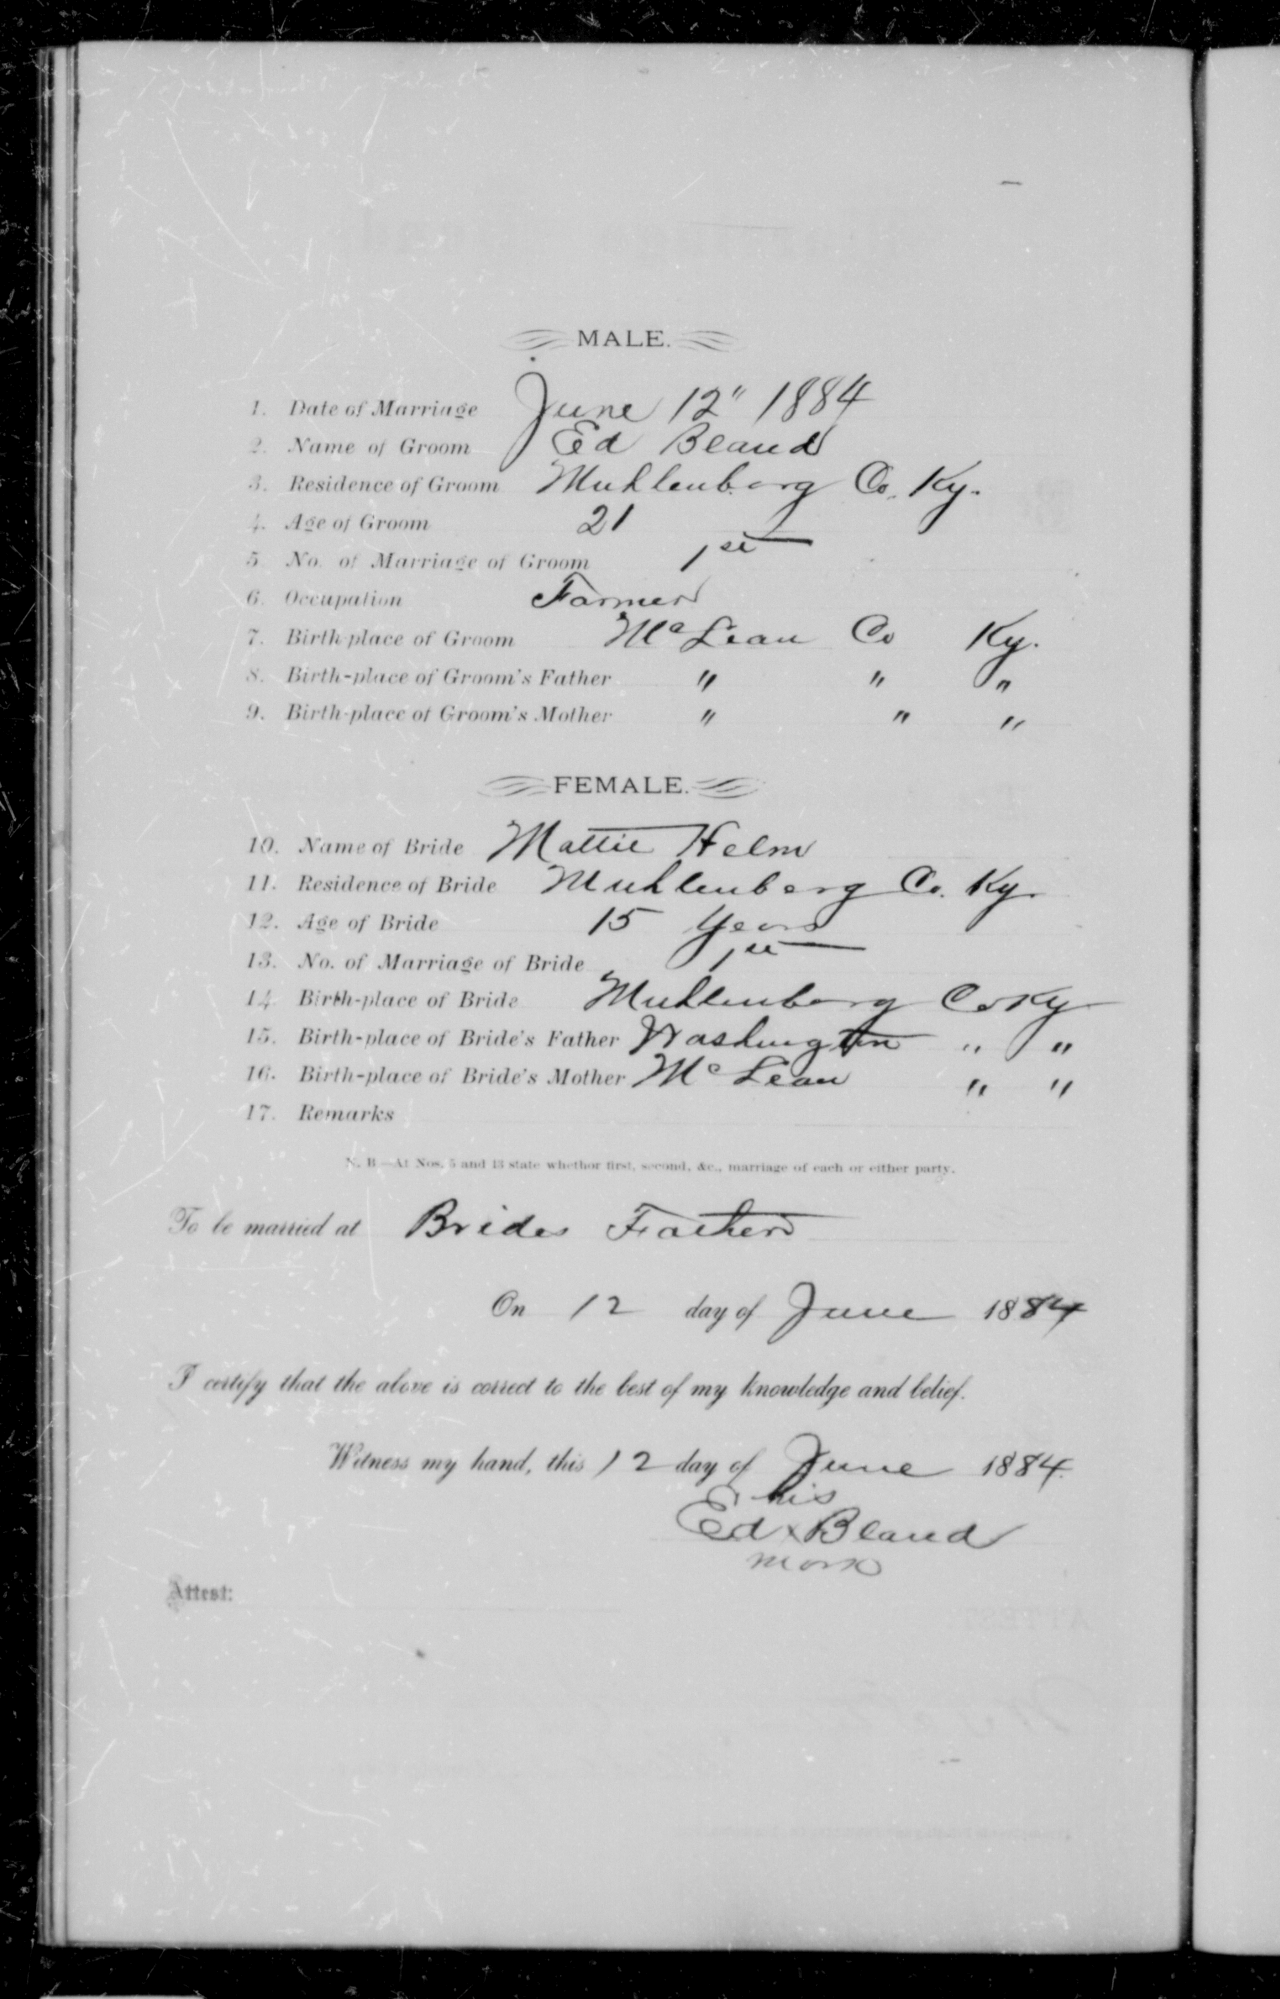 MALE.
1. Date of Marriage June 12" 1884
2. Name of Groom Ed Bland
3. Residence of Groom Muhlenberg Co. Ky.
4. Age of Groom 21
5. No. of Marriage of Groom 1st
6. Occupation Farmer
7. Birth-place of Groom McLean Co Ky.
8. Birth-place of Groom's Father " " "
9. Birth-place of Groom's Mother " " "
FEMALE.
10. Name of Bride Mattie Helm
11. Residence of Bride Muhlenberg Co. Ky.
12. Age of Bride 15 Years
13. No. of Marriage of Bride 1st
14. Birth-place of Bride Muhlenberg Co Ky
15. Birth-place of Bride's Father Washington " "
16. Birth-place of Bride's Mother McLean " "
17. Remarks
N. B.—At Nos. 5 and 13 state whether first, second, &c., marriage of each or either party.
To be married at Brides Fathers
On 12 day of June 1884
I certify that the above is correct to the best of my knowledge and belief.
Witness my hand, this 12 day of June 1884.
his
Ed x Bland
mark
Attest: